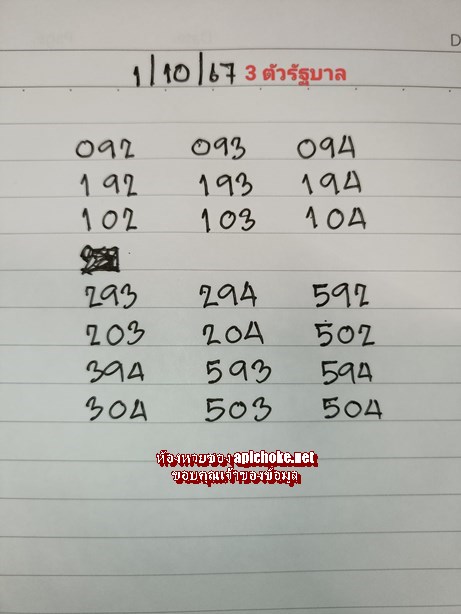 D
1/10/67 3 ตัวรัฐบาล
092 093 094
192 193 194
102 103 104
293 294 592
203 204 502
394 593 594
304 503 504
ห้องหวยซอง apichoke.net
ขอบคุณเจ้าของข้อมูล